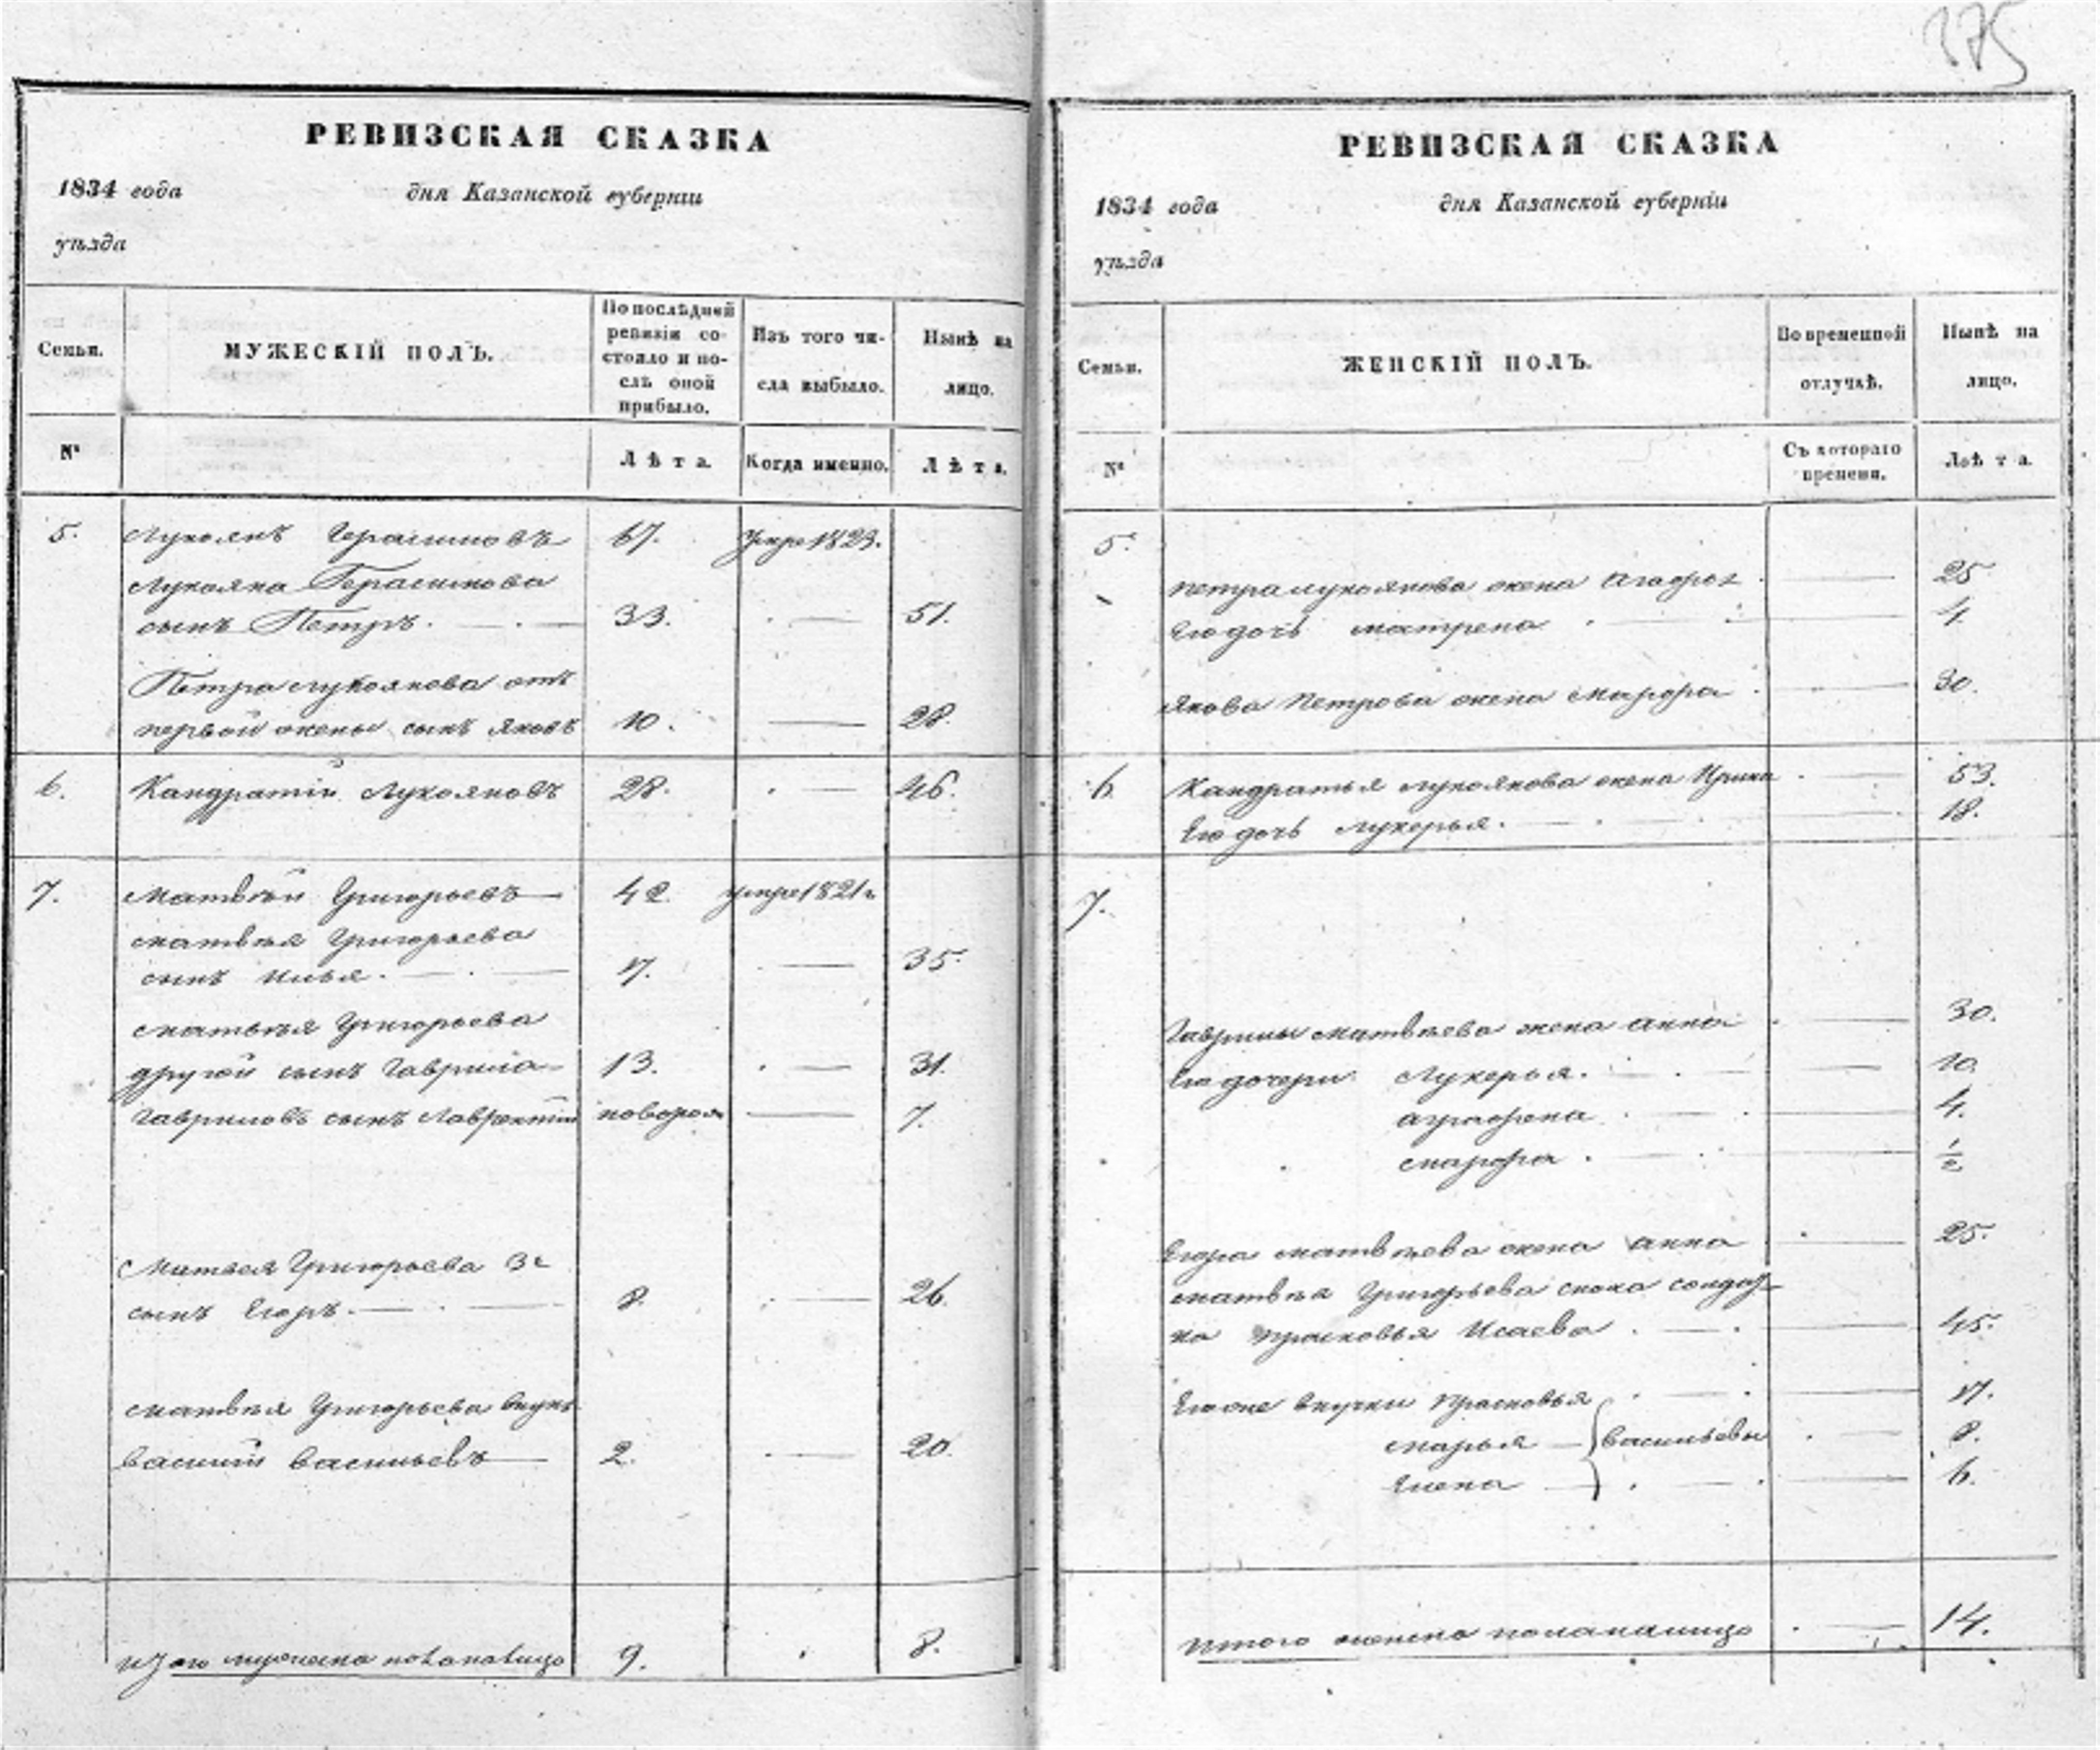 375
РЕВИЗСКАЯ СКАЗКА
1834 года дня Казанской губерніи
уѣзда
Семьи. МУЖЕСКІЙ ПОЛЪ. По послѣдней ревизіи состояло и послѣ оной прибыло. Изъ того числа выбыло. Нынѣ на лицо.
№ Лѣта. Когда именно. Лѣта.
5. Лукоянъ Герасимовъ 67. умре 1823.
Лукояна Герасимова
сынъ Петръ. 33. 51.
Петра Лукоянова отъ
первой жены сынъ Яковъ 10. 28.
6. Кандратій Лукояновъ 28. 46.
7. Матвѣй Григорьевъ 42. умре 1821г
Матвѣя Григорьева
сынъ Илья. 17. 35.
Матвѣя Григорьева
другой сынъ Гаврила 13. 31.
Гавриловъ сынъ Лаврентій новорож 7.
Матвея Григорьева 3й
сынъ Егоръ. 8. 26.
Матвѣя Григорьева внукъ
Василій Васильевъ 2. 20.
Итого мужеска пола налицо 9. 8.
РЕВИЗСКАЯ СКАЗКА
1834 года дня Казанской губерніи
уѣзда
Семьи. ЖЕНСКІЙ ПОЛЪ. Во временной отлучкѣ. Нынѣ на лицо.
№ Съ котораго времени. Лѣта.
5.
Петра Лукоянова жена 25
Его дочь Матрена 4.
Якова Петрова жена Марфа 30.
6. Кандратья Лукоянова жена Ирина 53.
Его дочь Лукерья. 18.
7.
Гаврилы Матвѣева жена Анна 30.
Его дочери Лукерья. 10.
Аграфена 4.
Марфа 1/2
Егора Матвѣева жена Анна 25.
Матвѣя Григорьева сноха солдат
ка Прасковья Исаева 45.
Его же внучки Прасковья 17.
Марья Васильевы 8.
Елена 6.
Итого женска пола налицо 14.